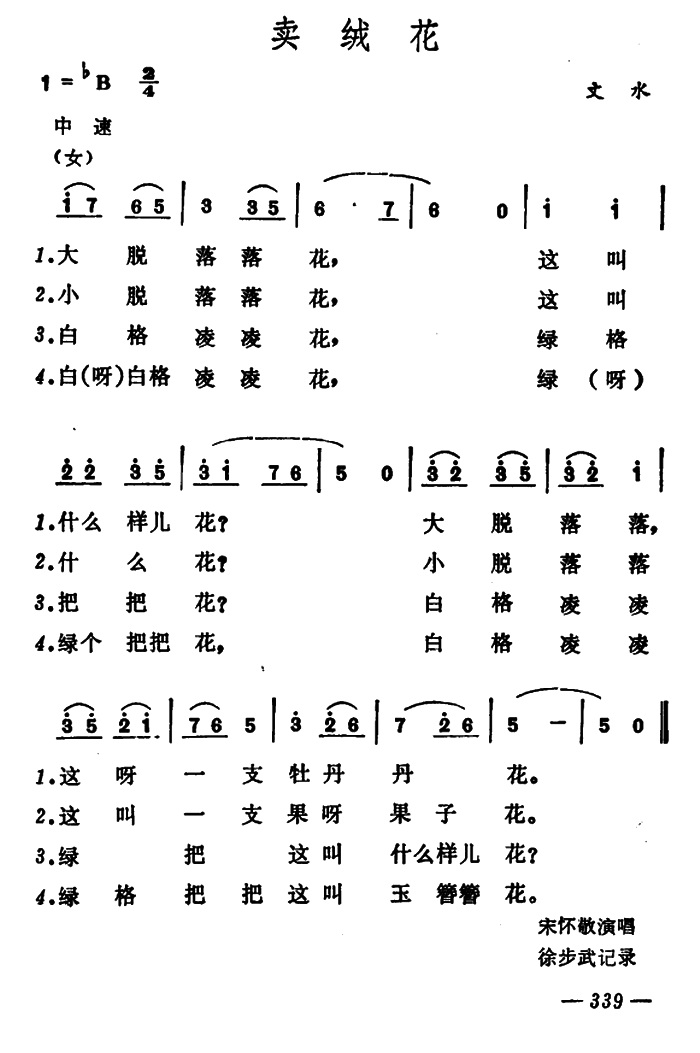 卖绒花
1=♭B 2/4
文水
中速
(女)
i̲7̲ 6̲5̲ | 3 3̲5̲ | 6 · 7̲ | 6 0 | i i |
1.大 脱 落 落 花， 这 叫
2.小 脱 落 落 花， 这 叫
3.白 格 凌 凌 花， 绿 格
4.白(呀)白格 凌 凌 花， 绿 (呀)
2̲̇2̲̇ 3̲̇5̲̇ | 3̲̇i̲ 7̲6̲ | 5 0 | 3̲̇2̲̇ 3̲̇5̲̇ | 3̲̇2̲̇ i |
1.什么 样儿 花? 大 脱 落 落，
2.什 么 花? 小 脱 落 落
3.把 把 花? 白 格 凌 凌
4.绿个 把把 花， 白 格 凌 凌
3̲̇5̲̇ 2̲̇i̲ | 7̲6̲ 5 | 3̇ 2̲̇6̲ | 7 2̲̇6̲ | 5 — | 5 0 ‖
1.这 呀 一 支 牡 丹 丹 花。
2.这 叫 一 支 果 呀 果 子 花。
3.绿 把 这 叫 什么样儿 花?
4.绿 格 把 把 这 叫 玉 簪簪 花。
宋怀敬演唱
徐步武记录
— 339 —